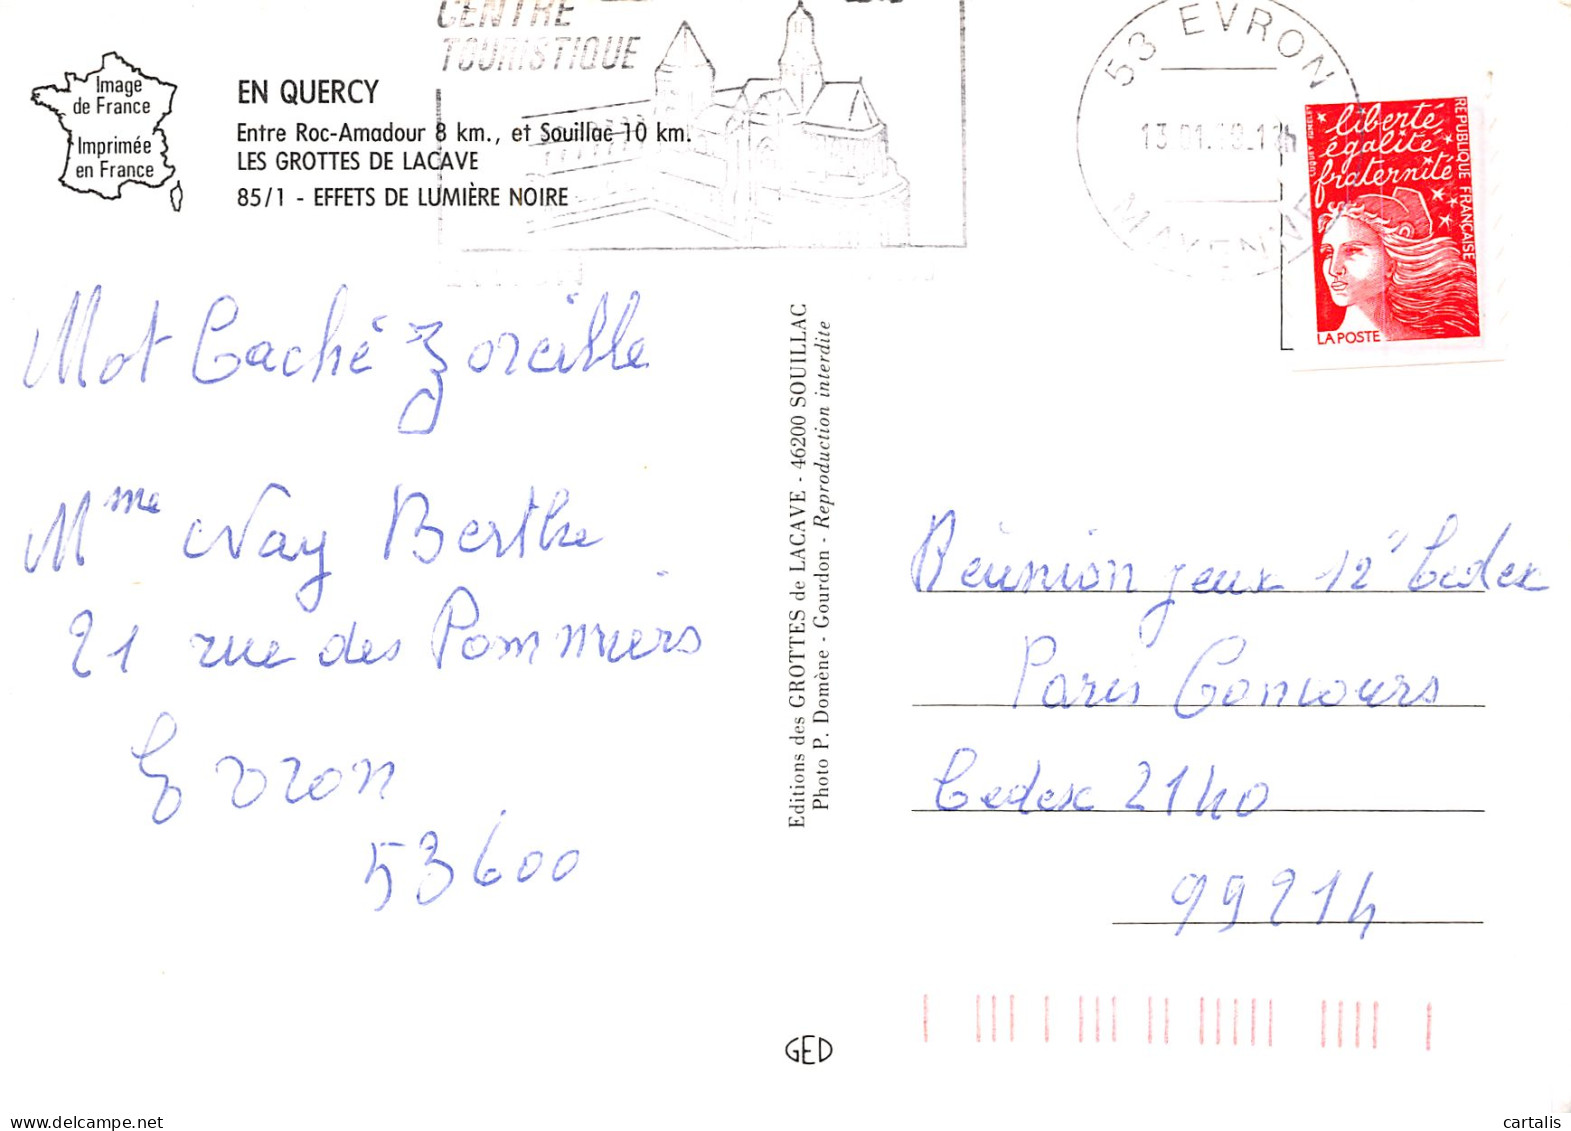 CENTRE
TOURISTIQUE
53 EVRON
MAYENNE
Image
de France
Imprimée
en France
EN QUERCY
Entre Roc-Amadour 8 km., et Souillac 10 km.
LES GROTTES DE LACAVE
85/1 - EFFETS DE LUMIÈRE NOIRE
liberté
égalité
fraternité
REPUBLIQUE FRANÇAISE
LA POSTE
Mot Caché Zoreille
Mme Nay Berthe
21 rue des Pommiers
Evron
53600
Editions des GROTTES de LACAVE - 46200 SOUILLAC
Photo P. Domène - Gourdon - Reproduction interdite
Réunion jeux 12" Cedex
Paris Concours
Cedex 2140
99214
GED
cartalis